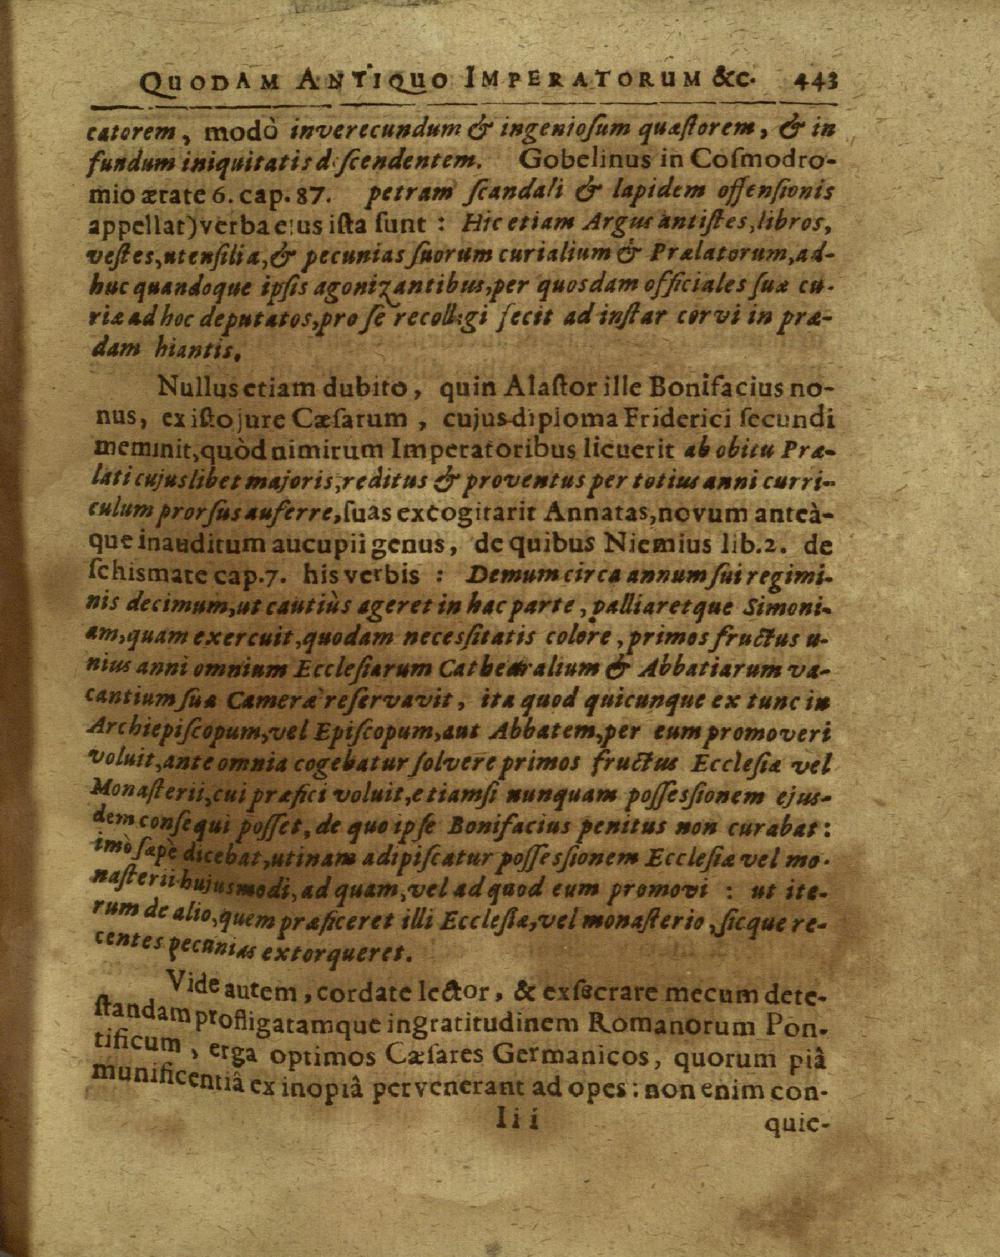 QUODAM ANTIQUO IMPERATORUM &c. 443
catorem, modò inverecundum & ingenioſum quæſtorem, & in
fundum iniquitatis d ſcendentem. Gobelinus in Coſmodro-
mio ætate 6. cap. 87. petram ſcandali & lapidem offenſionis
appellat) verba ejus iſta ſunt : Hic etiam Argus antiſtes, libros,
veſtes, utenſilia, & pecunias ſuorum curialium & Prælatorum, ad-
huc quandoque ipſis agonizantibus, per quosdam officiales ſuæ cu-
riæ ad hoc deputatos, pro ſe recolligi fecit ad inſtar corvi in præ-
dam hiantis.
Nullus etiam dubito, quin Alaſtor ille Bonifacius no-
nus, ex iſto jure Cæſarum, cujus diploma Friderici ſecundi
meminit, quòd nimirum Imperatoribus licuerit ab obitu Præ-
lati cujuslibet majoris, reditus & proventus per totius anni curri-
culum prorſus auferre, ſuas excogitarit Annatas, novum anteà-
que inauditum aucupii genus, de quibus Niemius lib. 2. de
ſchismate cap. 7. his verbis : Demum circa annum ſui regimi-
nis decimum, ut cautiùs ageret in hac parte, palliaretque Simoni-
am, quam exercuit, quodam neceſſitatis colore, primos fructus u-
nius anni omnium Eccleſiarum Cathedralium & Abbatiarum va-
cantium ſuæ Cameræ reſervavit, ita quod quicunque ex tunc in
Archiepiſcopum, vel Epiſcopum, aut Abbatem, per eum promoveri
voluit, ante omnia cogebatur ſolvere primos fructus Eccleſiæ vel
Monaſterii, cui præfici voluit, etiamſi nunquam poſſeſſionem ejus-
dem conſequi poſſet, de quo ipſe Bonifacius penitus non curabat :
imò ſæpè dicebat, utinam adipiſcatur poſſeſſionem Eccleſiæ vel mo-
naſterii hujusmodi, ad quam, vel ad quod eum promovi : ut ite-
rum de alio, quem præficeret illi Eccleſiæ, vel monaſterio, ſicque re-
centes pecunias extorqueret.
Vide autem, cordate lector, & exſecrare mecum dete-
ſtandam profligatamque ingratitudinem Romanorum Pon-
tificum, erga optimos Cæſares Germanicos, quorum piâ
munificentiâ ex inopiâ pervenerant ad opes : non enim con-
Iii quie-